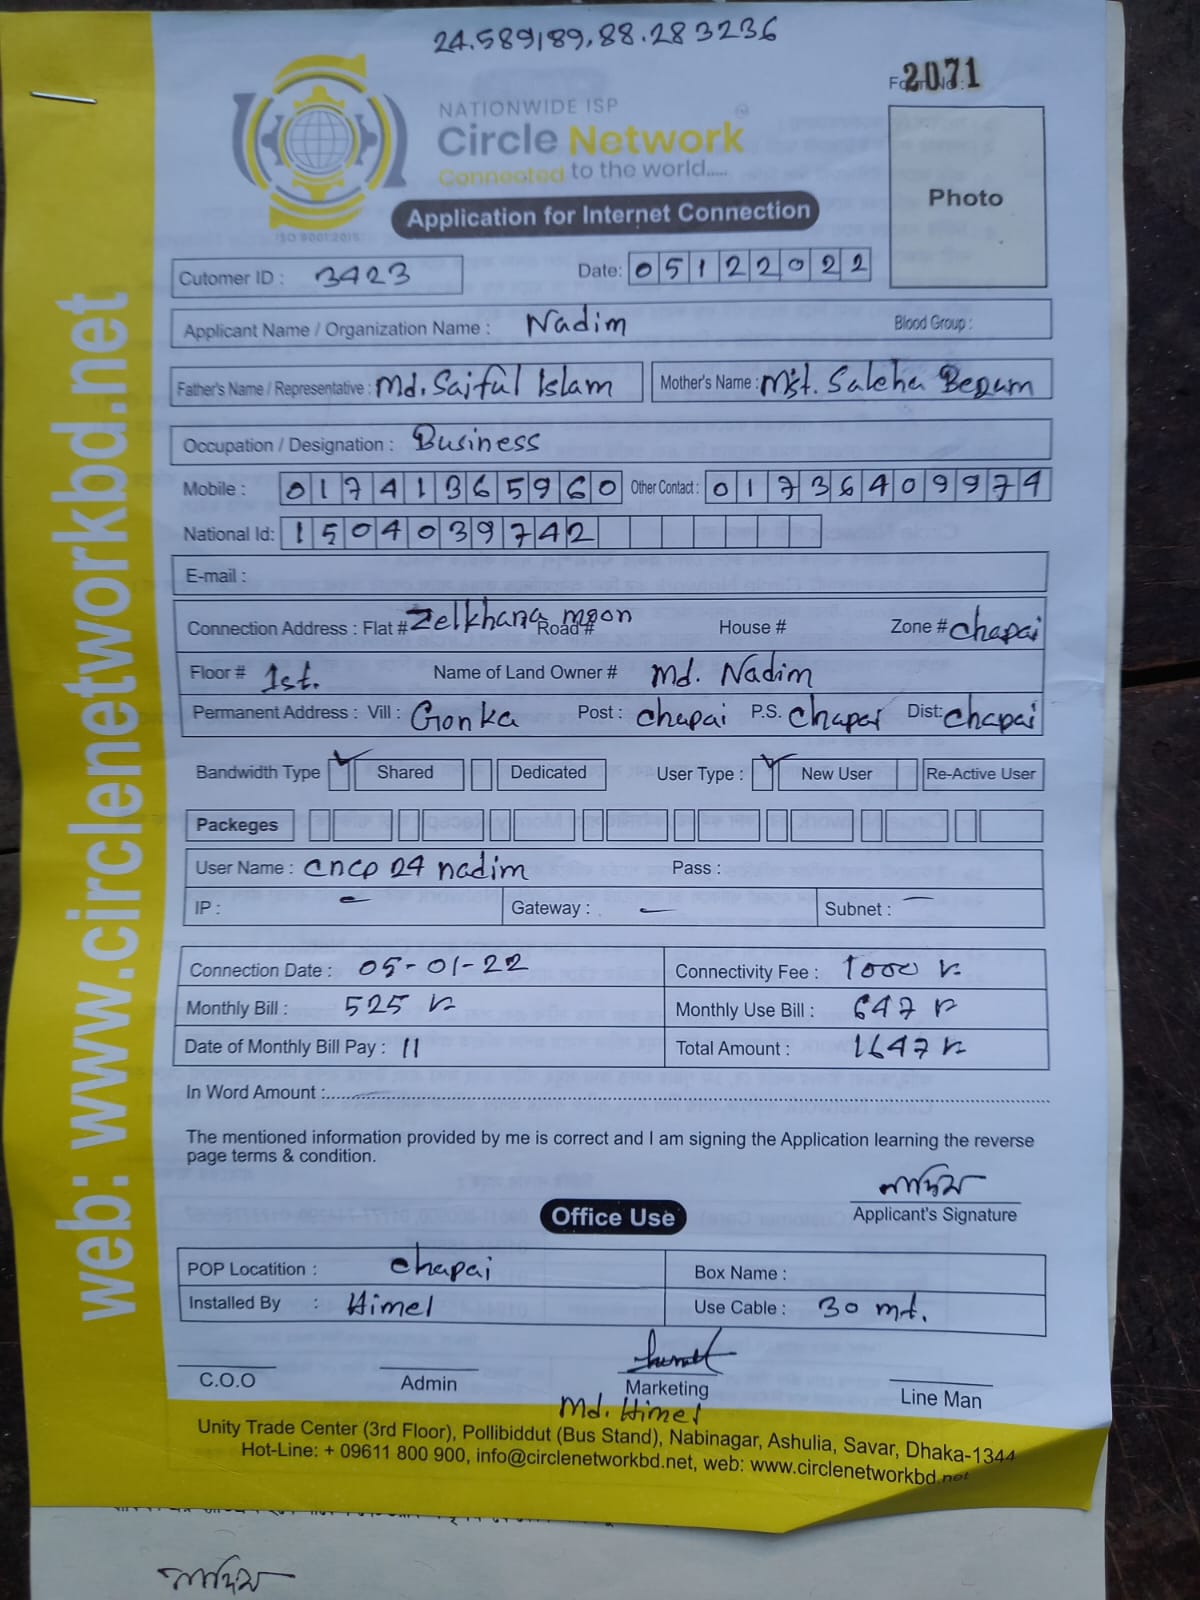 24.589189,88.283236
Form No: 2071
NATIONWIDE ISP
Circle Network
Connected to the world.....
ISO 9001:2015
Photo
Application for Internet Connection
Cutomer ID : 3423
Date: 05122022
Applicant Name / Organization Name : Nadim Blood Group :
Father's Name / Representative : Md. Saiful Islam Mother's Name : Mst. Saleha Begum
Occupation / Designation : Business
Mobile : 01741365960 Other Contact : 01736409974
National Id: 1504039742
E-mail :
Connection Address : Flat # Zelkhana moon Road # House # Zone # Chapai
Floor # 1st. Name of Land Owner # Md. Nadim
Permanent Address : Vill : Gonka Post : Chapai P.S. Chapai Dist: Chapai
Bandwidth Type Shared Dedicated User Type : New User Re-Active User
Packeges
User Name : cncp 24 nadim Pass :
IP : Gateway : Subnet :
Connection Date : 05-01-22 Connectivity Fee : 1000 ৳
Monthly Bill : 525 ৳ Monthly Use Bill : 647 ৳
Date of Monthly Bill Pay : 11 Total Amount : 1647 ৳
In Word Amount :
The mentioned information provided by me is correct and I am signing the Application learning the reverse
page terms & condition.
নাদিম
Applicant's Signature
Office Use
POP Locatition : Chapai Box Name :
Installed By : Himel Use Cable : 30 mt.
C.O.O Admin Marketing Line Man
Md. Himel
Unity Trade Center (3rd Floor), Pollibiddut (Bus Stand), Nabinagar, Ashulia, Savar, Dhaka-1344
Hot-Line: + 09611 800 900, info@circlenetworkbd.net, web: www.circlenetworkbd.net
web: www.circlenetworkbd.net
নাদিম